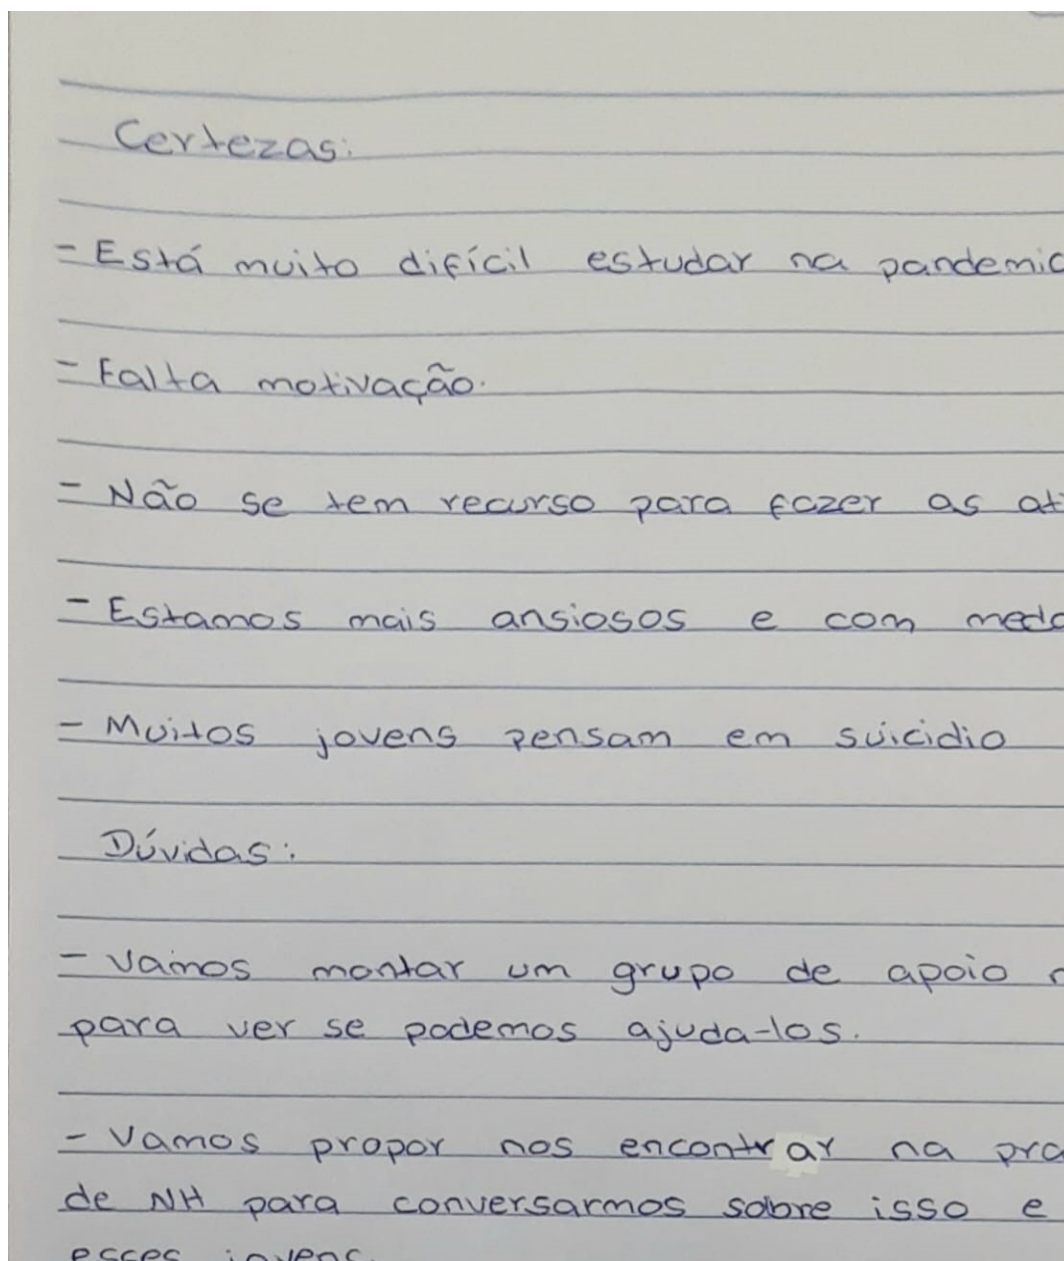 Certezas:
- Está muito difícil estudar na pandemia
- Falta motivação.
- Não se tem recurso para fazer as
- Estamos mais ansiosos e com medo
- Muitos jovens pensam em suicidio
Dúvidas:
- Vamos montar um grupo de apoio
para ver se podemos ajuda-los.
- Vamos propor nos encontrar na
de NH para conversarmos sobre isso e
esses jovens.